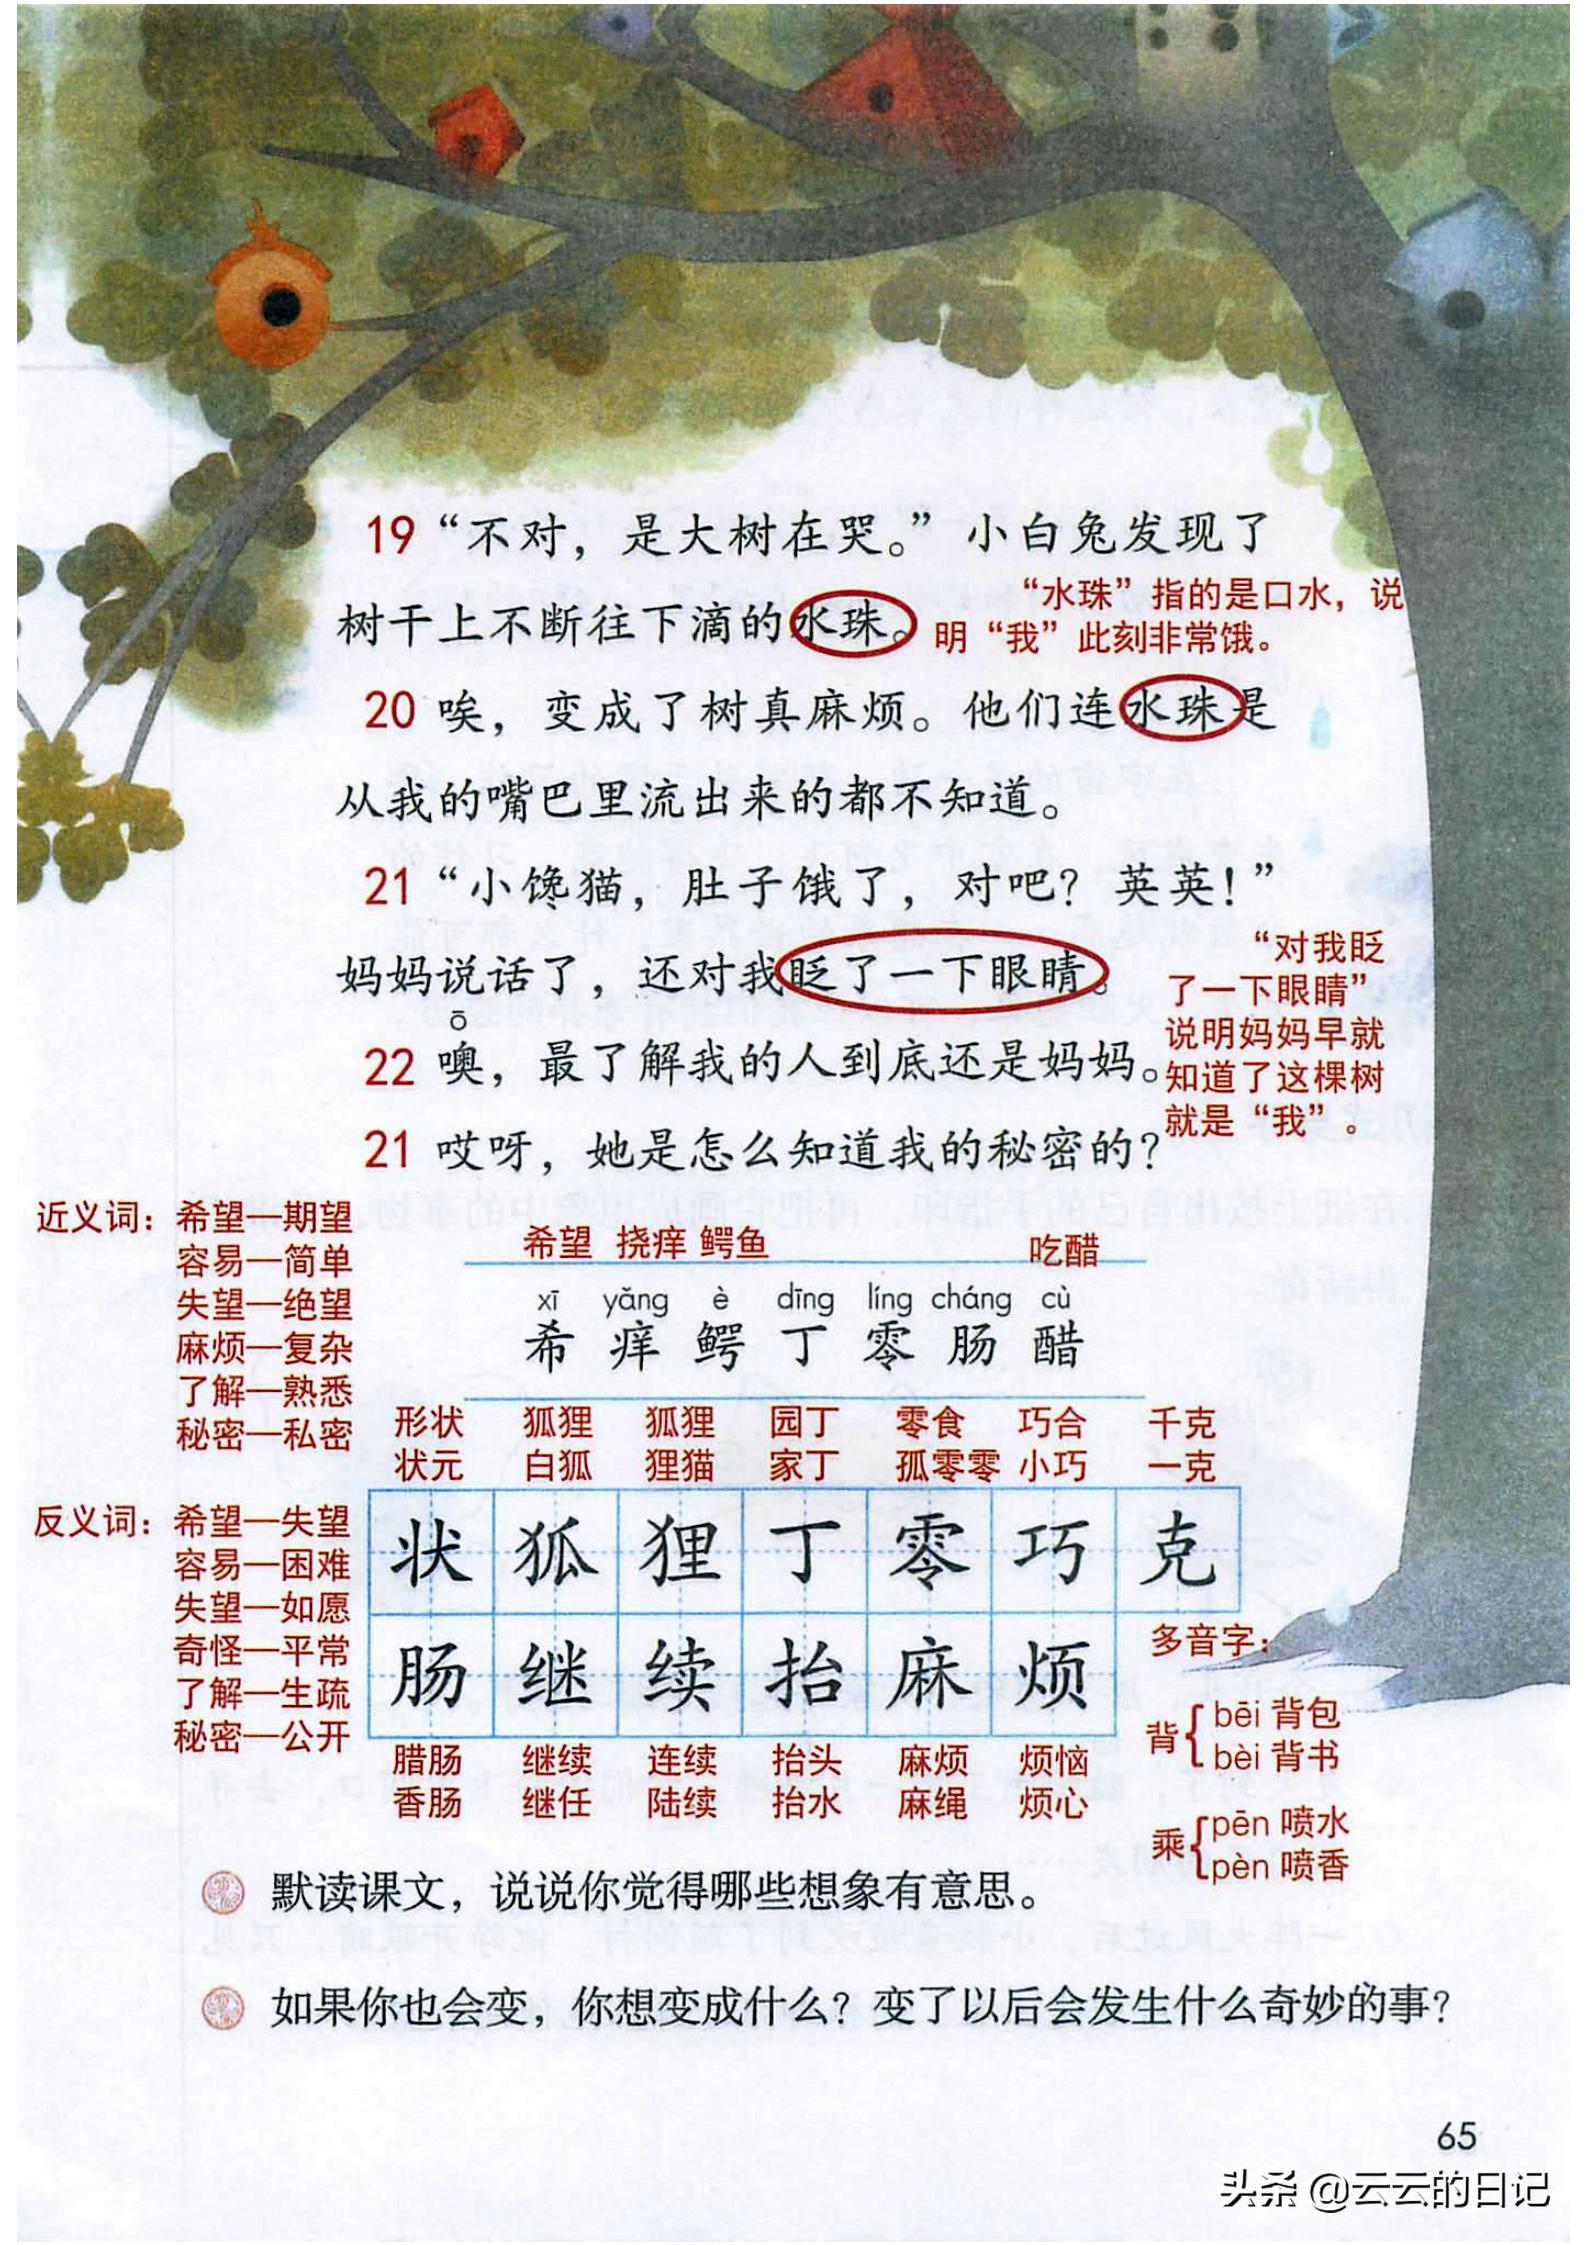 19 “不对，是大树在哭。”小白兔发现了
树干上不断往下滴的水珠。
“水珠”指的是口水，说
明“我”此刻非常饿。
20 唉，变成了树真麻烦。他们连水珠是
从我的嘴巴里流出来的都不知道。
21 “小馋猫，肚子饿了，对吧？英英！”
妈妈说话了，还对我眨了一下眼睛。
“对我眨
了一下眼睛”
说明妈妈早就
知道了这棵树
就是“我”。
ō
22 噢，最了解我的人到底还是妈妈。
21 哎呀，她是怎么知道我的秘密的？
近义词：希望—期望
容易—简单
失望—绝望
麻烦—复杂
了解—熟悉
秘密—私密
希望 挠痒 鳄鱼 吃醋
xī yǎng è dīng líng cháng cù
希 痒 鳄 丁 零 肠 醋
形状 狐狸 狐狸 园丁 零食 巧合 千克
状元 白狐 狸猫 家丁 孤零零 小巧 一克
反义词：希望—失望
容易—困难
失望—如愿
奇怪—平常
了解—生疏
秘密—公开
状 狐 狸 丁 零 巧 克
肠 继 续 抬 麻 烦
腊肠 继续 连续 抬头 麻烦 烦恼
香肠 继任 陆续 抬水 麻绳 烦心
多音字：
背{bēi 背包
bèi 背书
乘{pēn 喷水
pèn 喷香
默读课文，说说你觉得哪些想象有意思。
如果你也会变，你想变成什么？变了以后会发生什么奇妙的事？
65
头条 @云云的日记